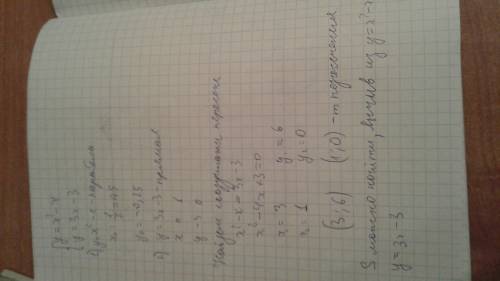 { y = x² - x
{ y = 3x - 3
1) y = x² - x парабола
x₀ = 1/2 = 0,5
y₀ = -0,25
2) y = 3x - 3 - прямая
x 0 1
y -3 0
Найдем координаты пересечен
x² - x = 3x - 3
x² - 4x + 3 = 0
x = 3 y₁ = 6
x = 1 y₂ = 0
(3; 6) (1; 0) - т пересечения
S можно найти, вычив из y = x² - x
y = 3x - 3